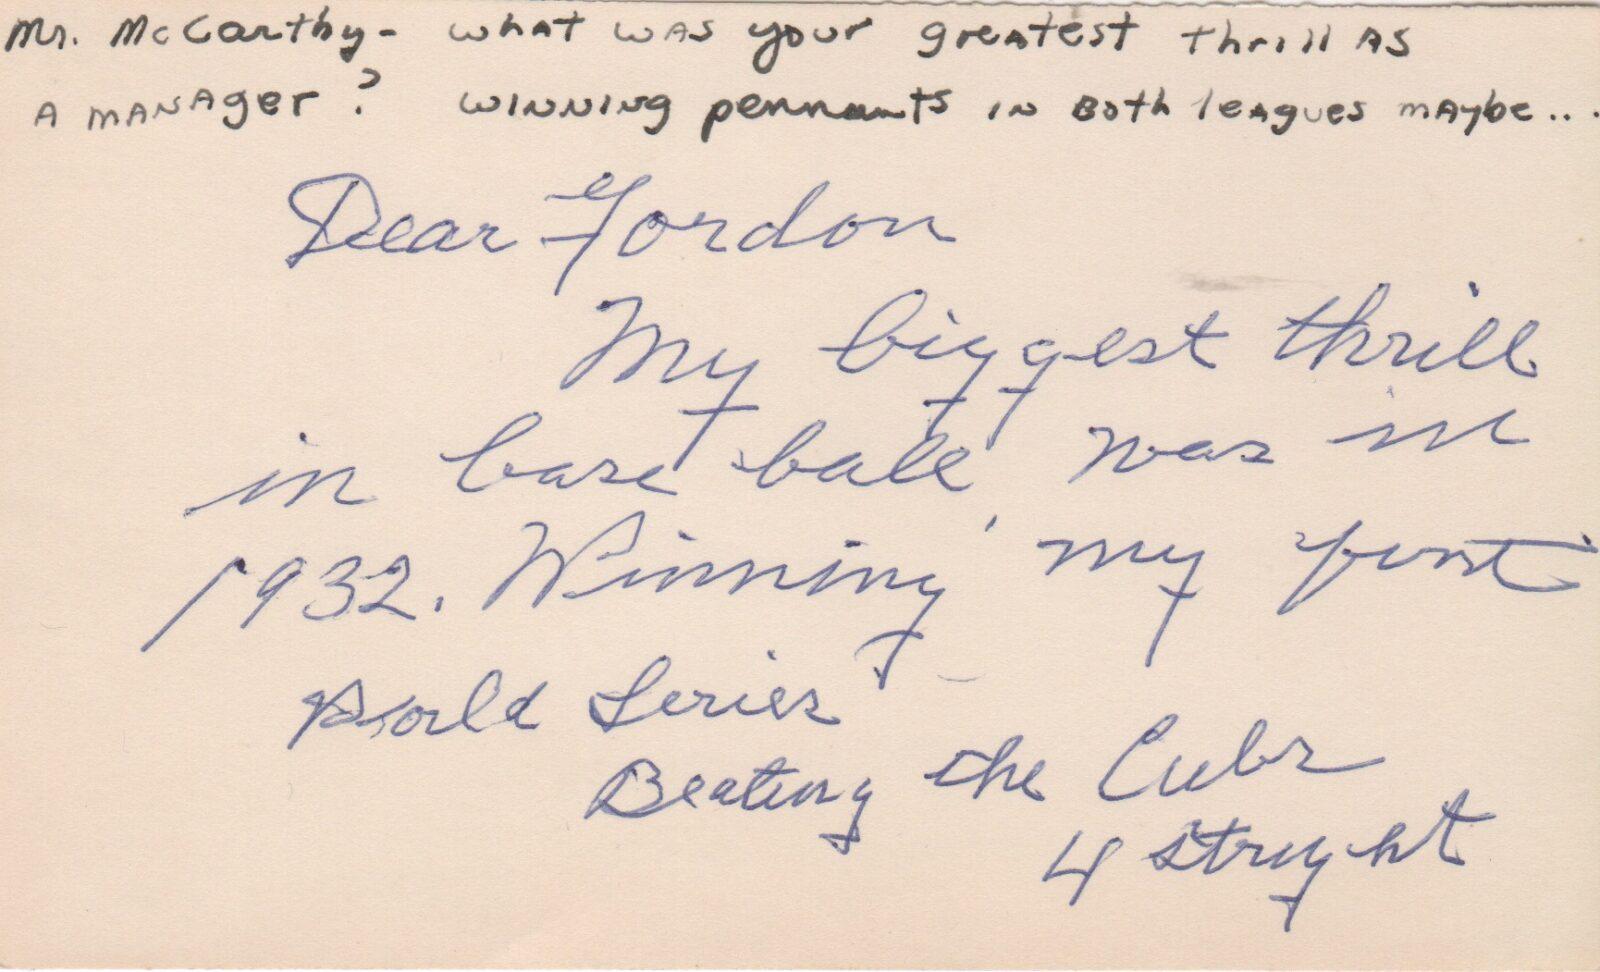 Mr. McCarthy- what was your greatest thrill as
a manager? winning pennants in both leagues maybe...
Dear Gordon
My biggest thrill
in base ball was in
1932. Winning my first
World Series
Beating the Cubs
4 stryght